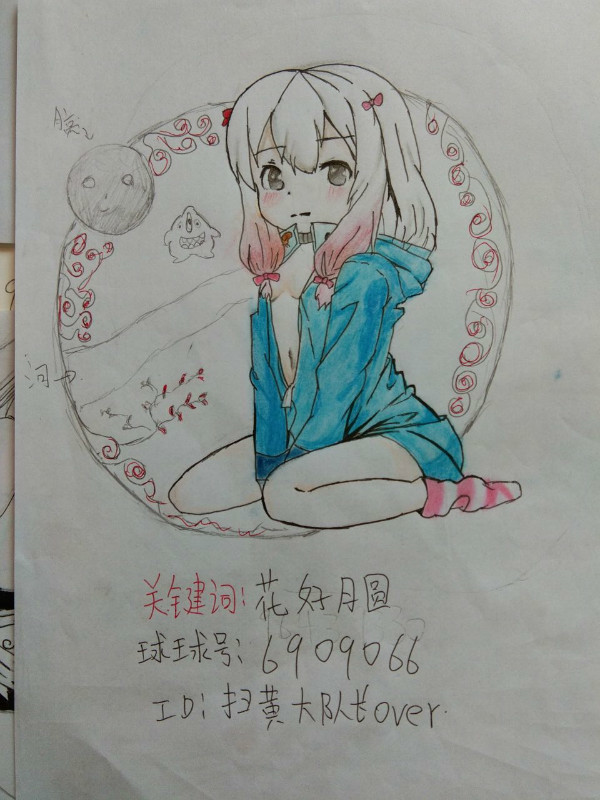 河
关键词:花好月圆
球球号:6909066
ID:扫黄大队长over.